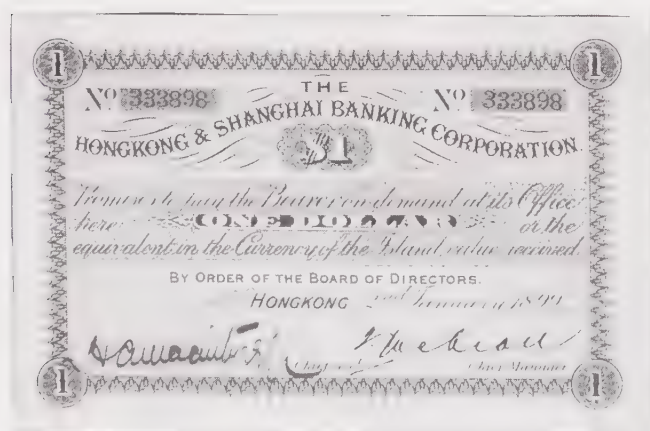 1 1
THE
Nº 333898 Nº 333898
HONGKONG & SHANGHAI BANKING CORPORATION.
$1
Promises to pay the Bearer on demand at its Office
here ONE DOLLAR or the
equivalent in the Currency of the Island value received.
BY ORDER OF THE BOARD OF DIRECTORS.
HONGKONG January
Chief Manager
1 1